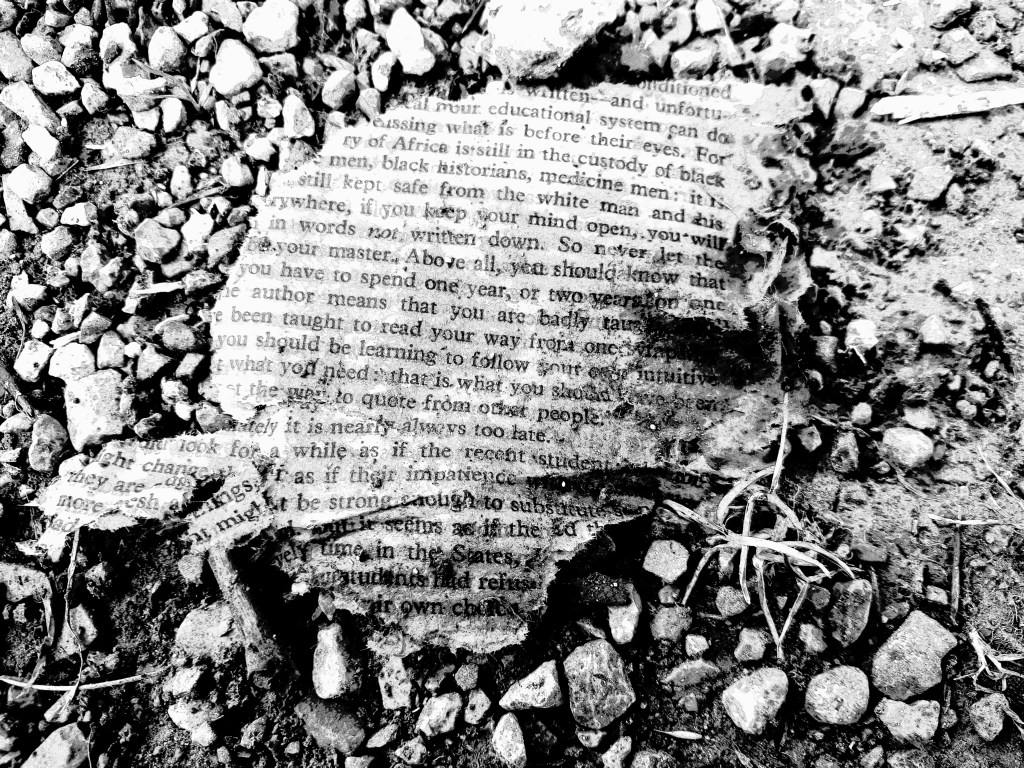 conditioned
written—and unfortu-
our educational system can do
what is before their eyes. For
ry of Africa is still in the custody of black
men, black historians, medicine men: it is
still kept safe from the white man and his
rywhere, if you keep your mind open, you will
in words not written down. So never let the
be your master. Above all, you should know that
you have to spend one year, or two years on one
author means that you are badly
been taught to read your way from one
you should be learning to follow your own intuitive
what you need: that is what you should have been
not the way to quote from other people."
it is nearly always too late.
look for a while as if the recent student
ght change
as if their impatience
they are
t be strong enough to substitute
more fresh
might
it seems as if the
time in the States,
students had refus
ir own